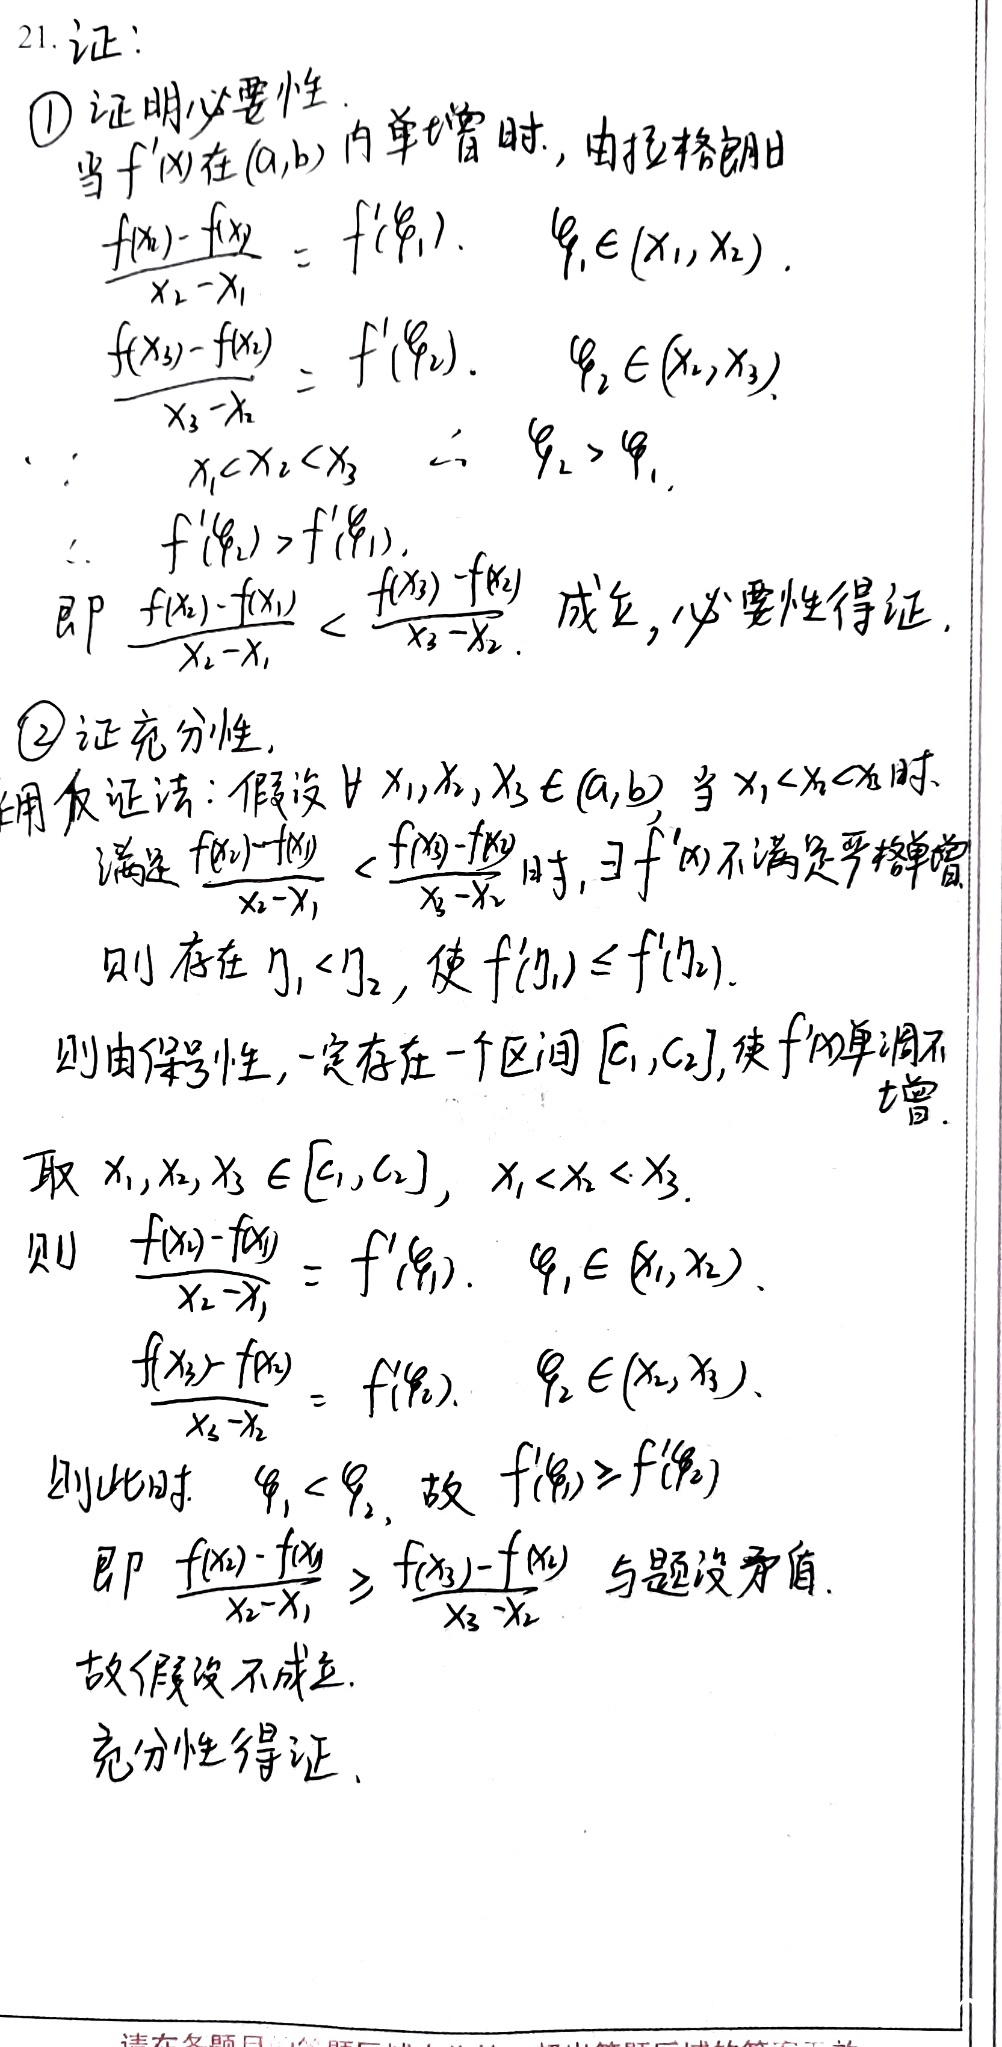 21. 证：
① 证明必要性.
当 f'(x) 在 (a,b) 内单增时, 由拉格朗日
(f(x₂)-f(x₁))/(x₂-x₁) = f'(φ₁). φ₁∈(x₁,x₂).
(f(x₃)-f(x₂))/(x₃-x₂) = f'(φ₂). φ₂∈(x₂,x₃).
∵ x₁<x₂<x₃ ∴ φ₂>φ₁.
∴ f'(φ₂)>f'(φ₁).
即 (f(x₂)-f(x₁))/(x₂-x₁) < (f(x₃)-f(x₂))/(x₃-x₂). 成立, 必要性得证.
② 证充分性.
用反证法: 假设 ∀ x₁,x₂,x₃∈(a,b), 当 x₁<x₂<x₃ 时.
满足 (f(x₂)-f(x₁))/(x₂-x₁) < (f(x₃)-f(x₂))/(x₃-x₂) 时, ∃ f'(x) 不满足严格单增
则存在 η₁<η₂, 使 f'(η₁)≤f'(η₂).
则由保号性, 一定存在一个区间 [c₁,c₂], 使 f'(x)单调不
增.
取 x₁,x₂,x₃∈[c₁,c₂], x₁<x₂<x₃.
则 (f(x₂)-f(x₁))/(x₂-x₁) = f'(φ₁). φ₁∈(x₁,x₂).
(f(x₃)-f(x₂))/(x₃-x₂) = f'(φ₂). φ₂∈(x₂,x₃).
则此时 φ₁<φ₂, 故 f'(φ₁)≥f'(φ₂)
即 (f(x₂)-f(x₁))/(x₂-x₁) ≥ (f(x₃)-f(x₂))/(x₃-x₂) 与题设矛盾.
故假设不成立.
充分性得证.
请在各题目